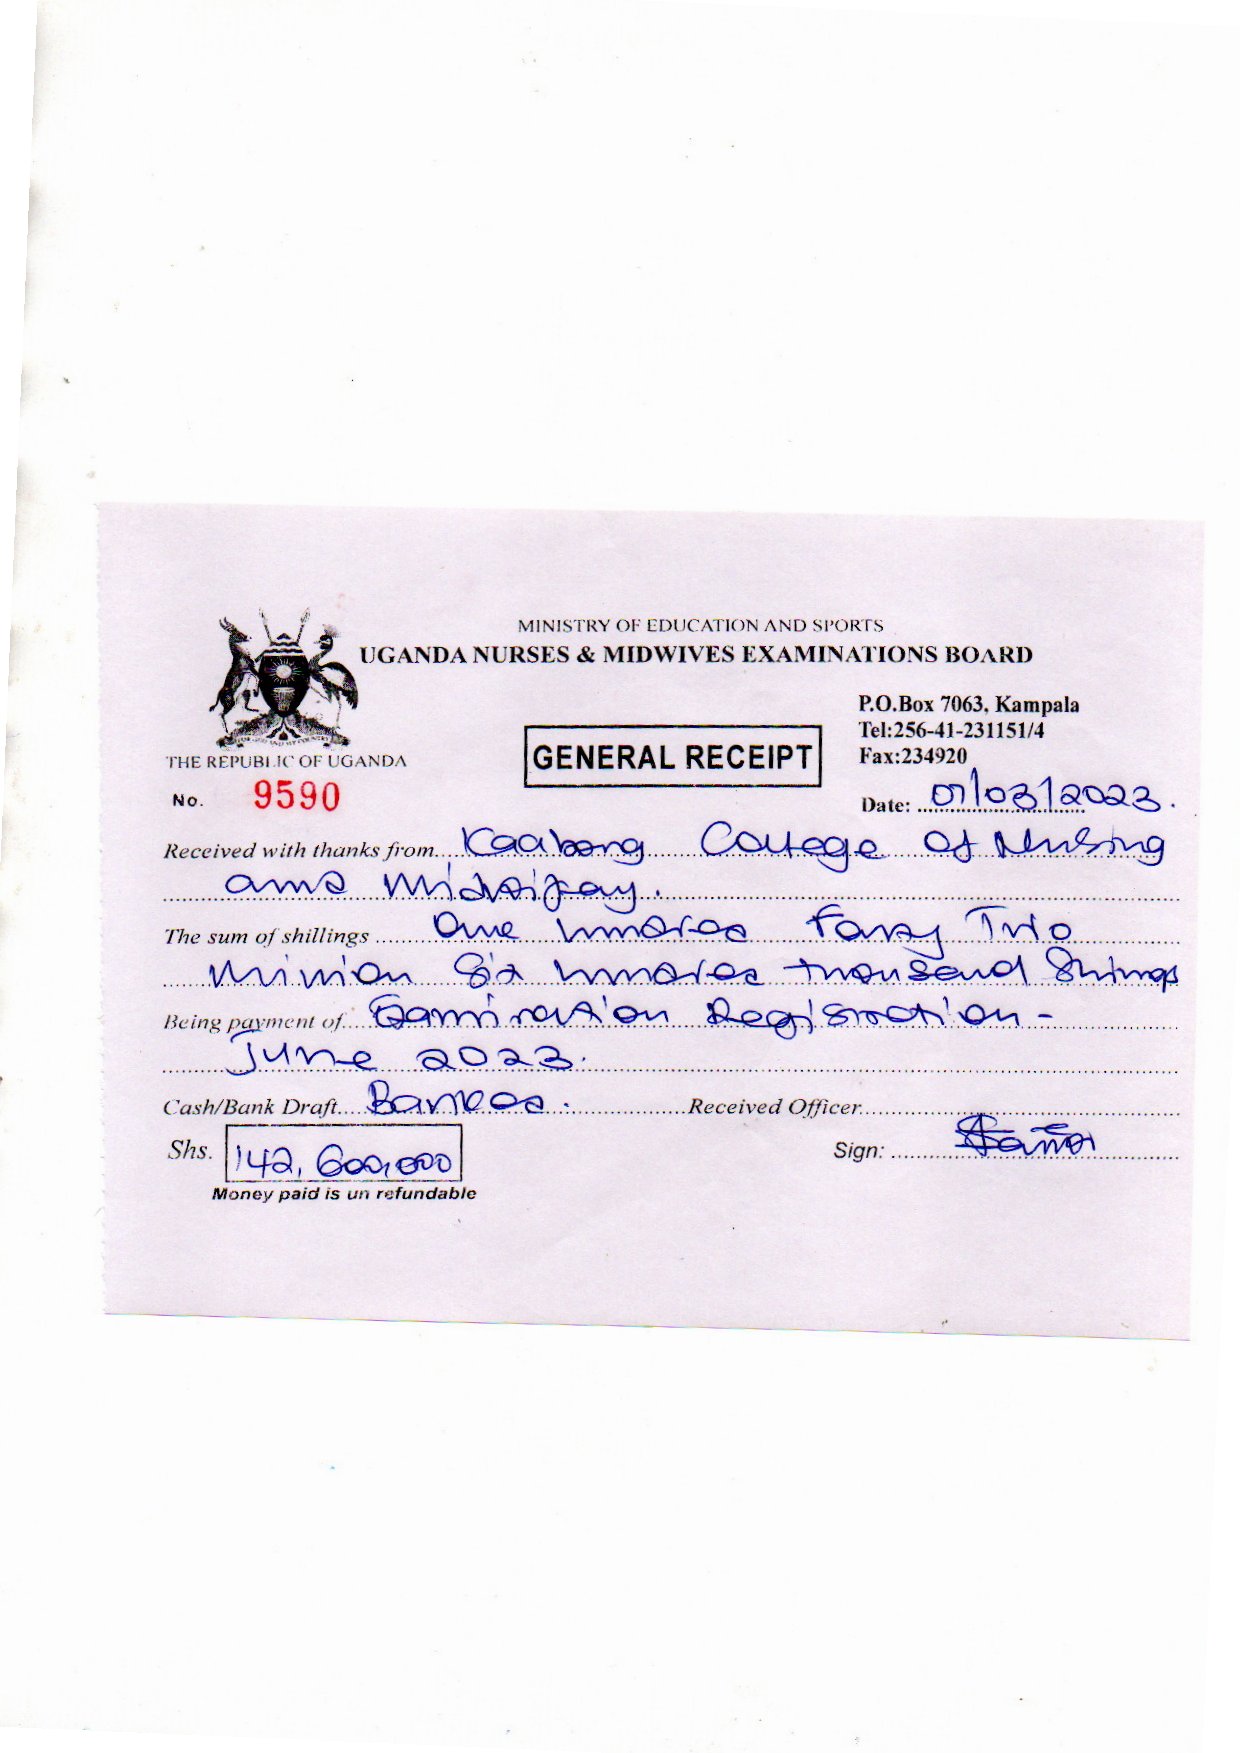 MINISTRY OF EDUCATION AND SPORTS
UGANDA NURSES & MIDWIVES EXAMINATIONS BOARD
P.O.Box 7063, Kampala
Tel:256-41-231151/4
Fax:234920
THE REPUBLIC OF UGANDA
GENERAL RECEIPT
No. 9590
Date: 07/03/2023.
Received with thanks from Kaabong College of Nursing
and Midwifery.
The sum of shillings One hundred Forty Two
Million Six hundred thousand Shillings
Being payment of Examination Registration -
June 2023.
Cash/Bank Draft Banked. Received Officer
Shs. 142,600,000
Sign:
Money paid is un refundable